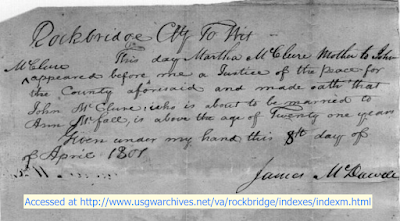 Rockbridge Cty To Wit
This day Martha McClure Mother to John
McClure
appeared before me a Justice of the Peace for
the County aforesaid and made oath that
John McClure who is about to be married to
Ann McFall, is above the age of Twenty one years
Given under my hand this 8th day of
of April 1801
James McDowell
Accessed at http://www.usgwarchives.net/va/rockbridge/indexes/indexm.html